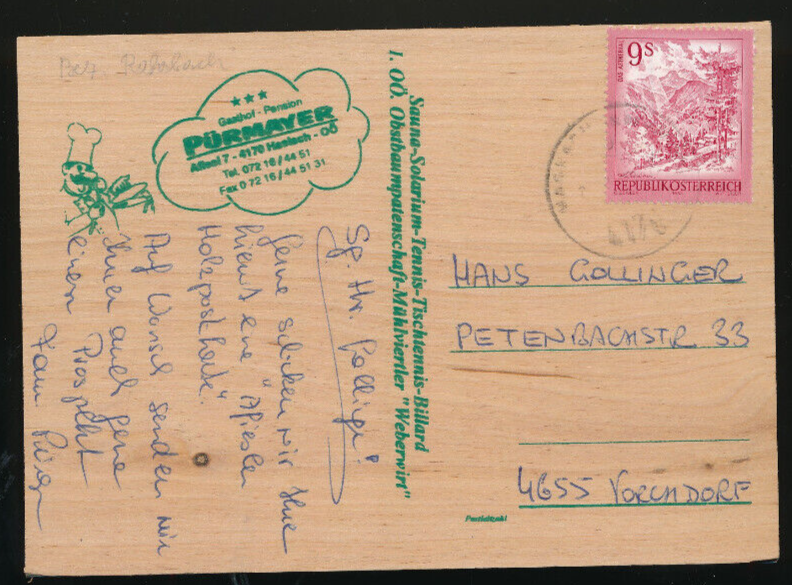 Bez. Rohrbach
★★★
Gasthof - Pension
PÜRMAYER
Afiesl 7 - 4170 Haslach - OÖ
Tel. 072 16 / 44 51
Fax 0 72 16 / 44 51 31
Sauna-Solarium-Tennis-Tischtennis-Billard
1. OÖ. Obstbaumpatenschaft-Mühlviertler "Weberwirt"
Sg. Hr. Gollinger!
Gerne schicken wir Ihne
hiermit eine "Afiesler
Holzpostkarte".
Auf Wunsch senden wir
Ihnen auch gerne
einen Prospekt
Fam.
9s
REPUBLIK ÖSTERREICH
4170
HANS GOLLINGER
PETENBACHSTR 33
4655 VORCHDORF